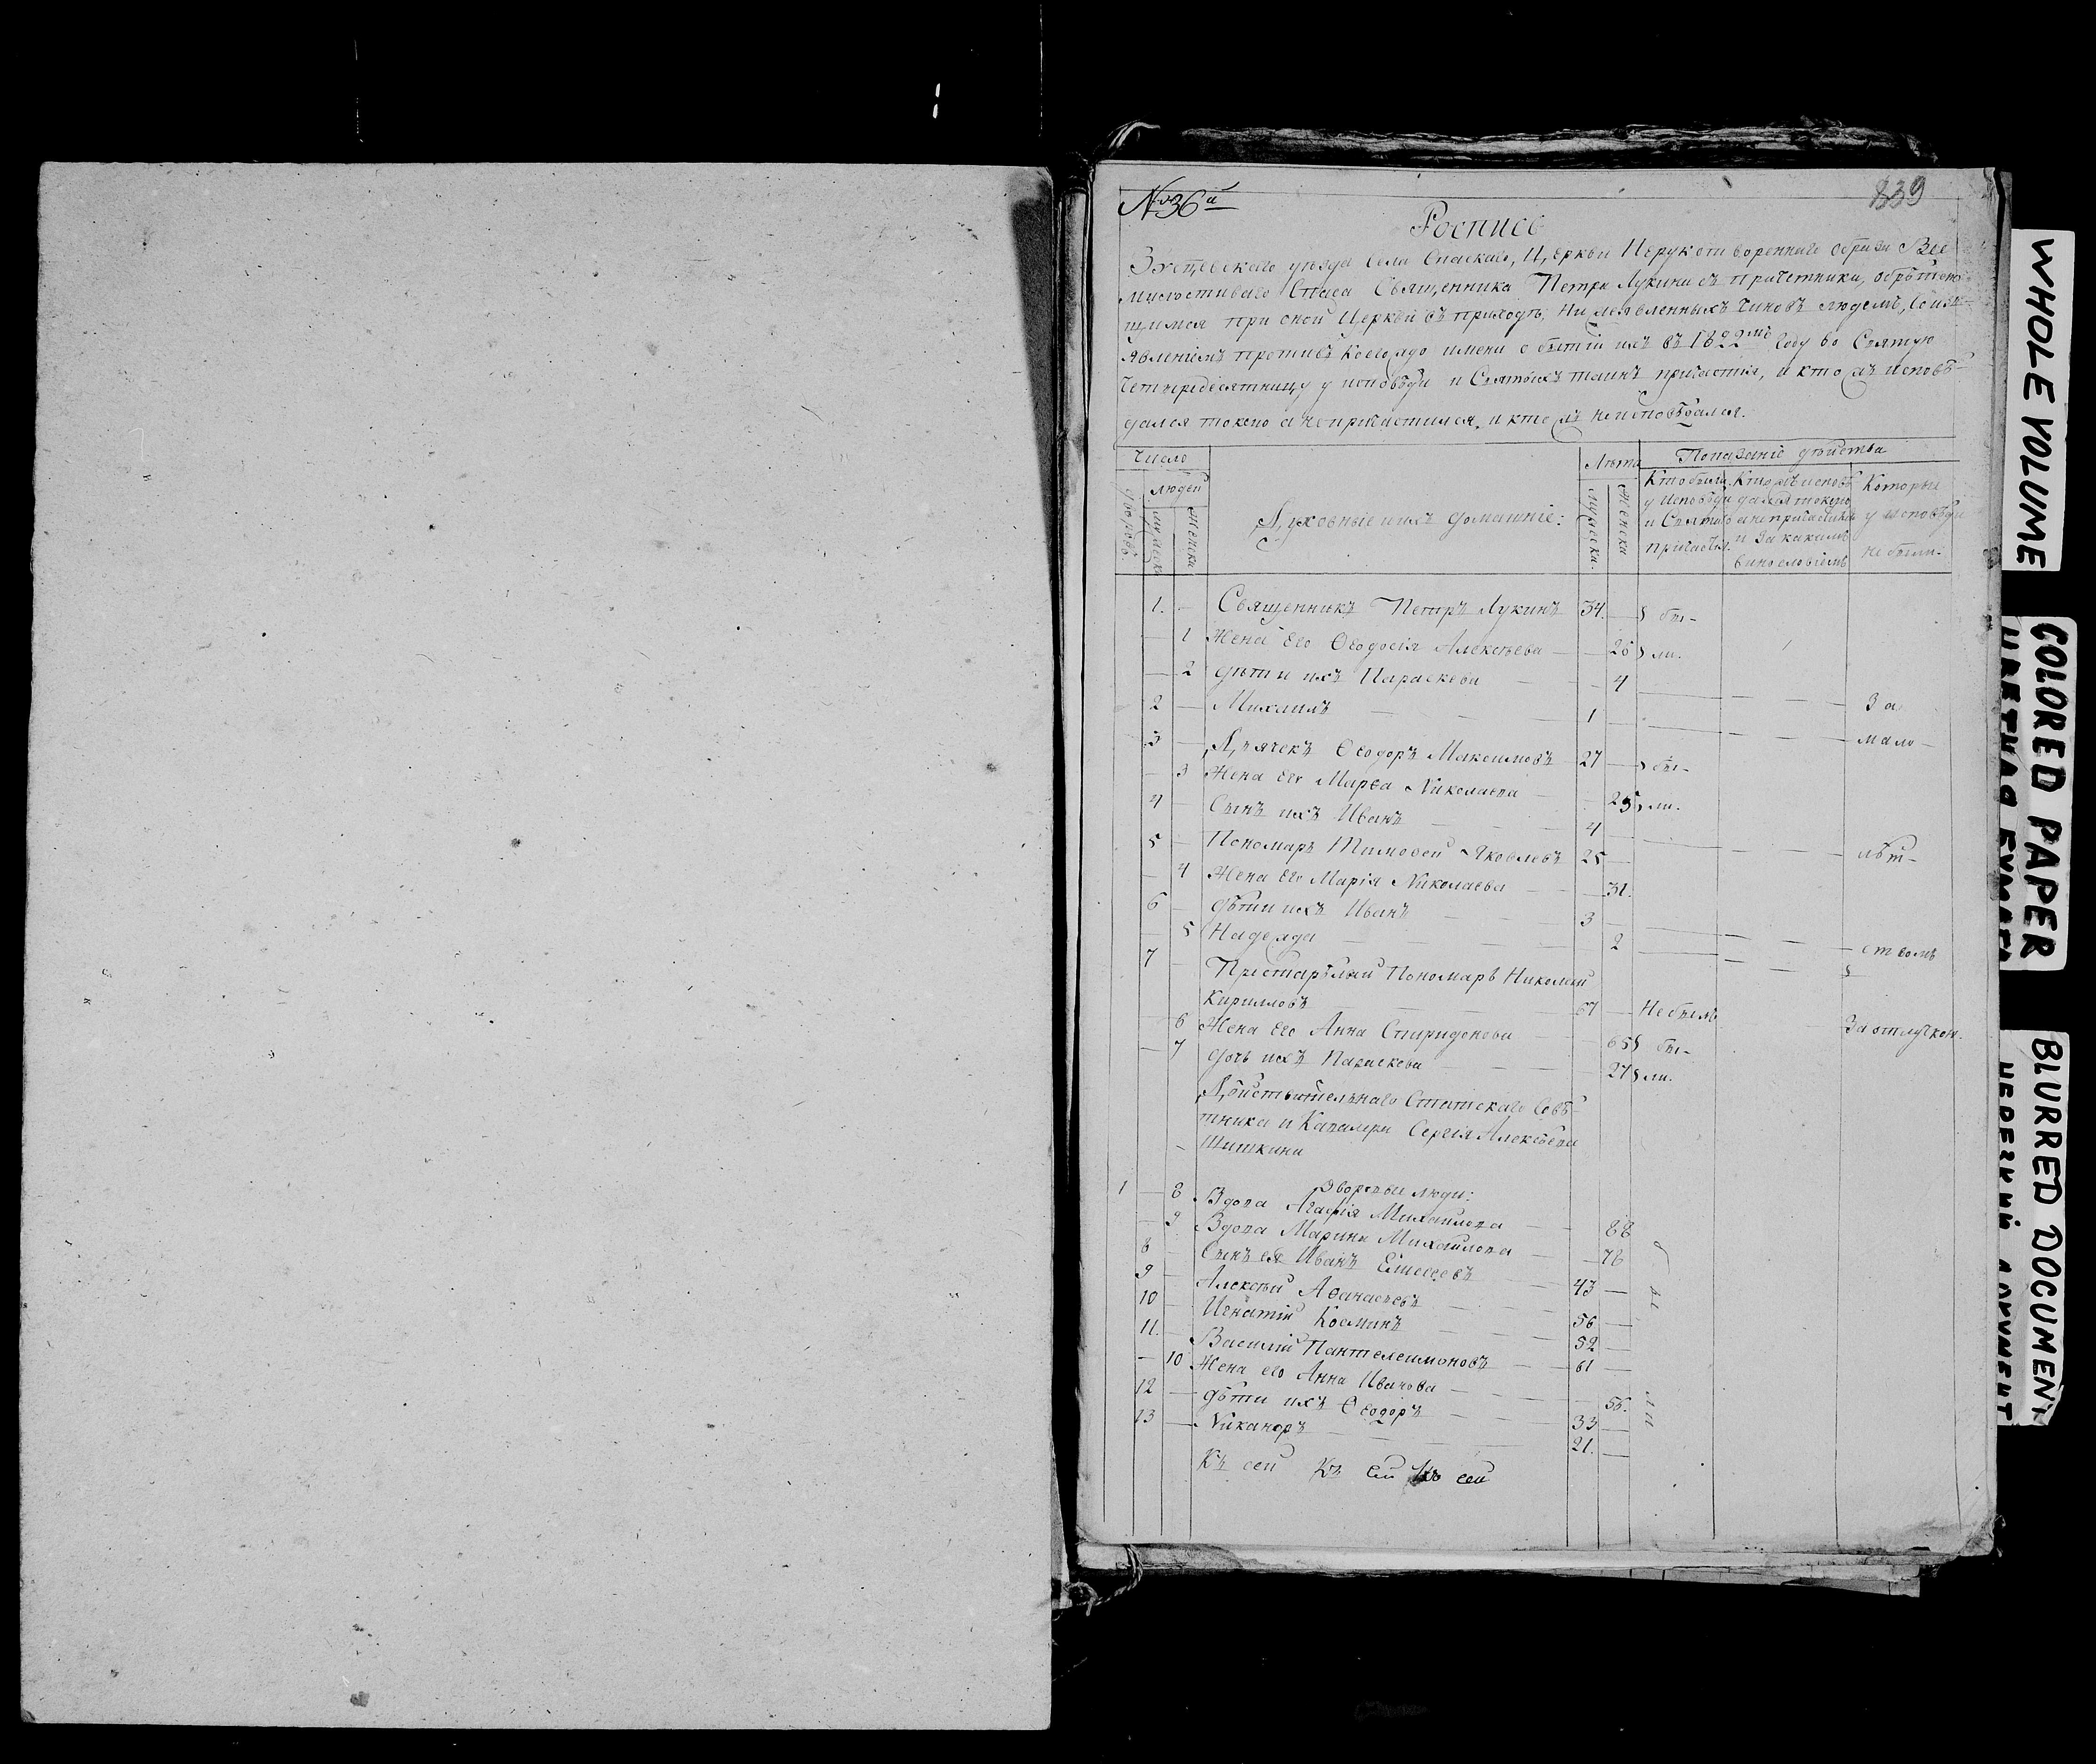 № 36й
839
Роспись
уезда села Спаскаго, Церкви Нерукотвореннаго образа Все
милостиваго Спаса Священника Петра Лукина съ причетники, обрѣтаю-
щимся при оной Церкви въ приходѣ, нижеявленныхъ чиновъ людемъ, со изъ-
явленіемъ противъ коегождо имени о бытіи ихъ въ 1822мъ году во Святую
Четыредесятницу у исповѣди и Святыхъ таинъ причастія, и кто жъ исповѣ-
дался токмо а не причастился, и кто жъ не исповѣдался.
Число
Лѣта
Показаніе дѣйства
людей
дворовъ
мужеска
женска
Духовные и ихъ домашніе:
мужеска.
женска
Кто были у исповѣди и Святаго причастія.
Кто жъ исповѣдался токмо а не причастился и за какимъ винословіемъ
Которые у исповѣди не были.
1. — Священникъ Петръ Лукинъ 34. — бы-
— 1 Жена его Ѳеодосія Алексѣева — 26 ли.
— 2 дѣти ихъ Параскева — 4
2 — Михаилъ 1 — За
мало-
3 — Дьячекъ Ѳеодоръ Максимовъ 27 — бы-
— 3 Жена его Марѳа Николаева — 25 ли.
4 — Сынъ ихъ Иванъ 4
5 — Пономарь Тимоѳей Яковлевъ 25 — лѣт-
— 4 Жена его Марія Николаева — 31.
6 — дѣти ихъ Иванъ 3 —
— 5 Надежда — 2 ствомъ
7 — Престарѣлый Пономарь Николай
Кирилловъ 67 — Не былъ За отлучкою.
— 6 Жена его Анна Спиридонова — 65 бы-
— 7 дочь ихъ Параскева — 27 ли.
Дѣйствительнаго Статскаго Совѣ-
тника и Кавалера Сергія Алексѣева
Шишкина
Дворовые люди:
1 — 8 Вдова Агафія Михайлова — 88
— 9 Вдова Марина Михайлова — 78
8 — Сынъ ея Иванъ Елисеевъ 43 — бы
9 — Алексѣй Аѳанасьевъ 56 —
10 — Игнатій Косминъ 52 —
11. — Василій Пантелеимоновъ 61 —
— 10 Жена его Анна Иванова — 55. ли
12 — дѣти ихъ Ѳеодоръ 33 —
13 — Никаноръ 21. —
Къ сей Къ сей Къ сей
WHOLE VOLUME
COLORED PAPER
BLURRED DOCUMENT